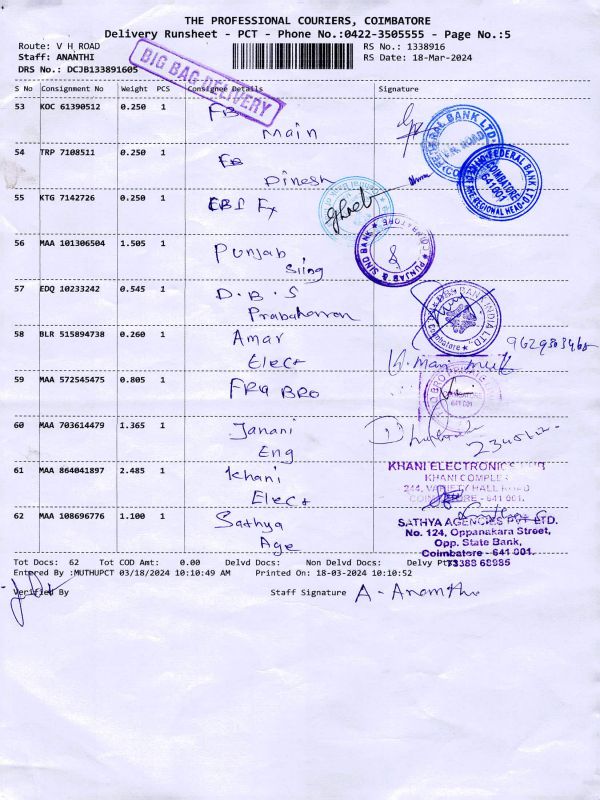 THE PROFESSIONAL COURIERS, COIMBATORE
Delivery Runsheet - PCT - Phone No.:0422-3505555 - Page No.:5
Route: V H ROAD RS No.: 1338916
Staff: ANANTHI RS Date: 18-Mar-2024
DRS No.: DCJB133891605
BIG BAG DELIVERY
S No Consignment No Weight PCS Consignee Details Signature
53 KOC 61390512 0.250 1 FB
Main
FEDERAL BANK LTD
54 TRP 7108511 0.250 1
Dinesh
FEDERAL BANK LTD
COIMBATORE
641001
55 KTG 7142726 0.250 1
56 MAA 101306504 1.505 1 Punjab
Sing
PUNJAB & SIND BANK COIMBATORE
57 EDQ 10233242 0.545 1 D.B.S
Prabaharran
BANK INDIA LTD.
Coimbatore
58 BLR 515894738 0.260 1 Amar
Elect
59 MAA 572545475 0.805 1 FRG BRO
641 001
60 MAA 703614479 1.365 1 Janani
Eng
61 MAA 864041897 2.485 1 Khani
Elect
KHANI ELECTRONICS HUB
KHANI COMPLEX
244, VARIETY HALL ROAD
COIMBATORE - 641 001.
62 MAA 108696776 1.100 1 Sathya
Age
SATHYA AGENCIES PVT LTD.
No. 124, Oppanakara Street,
Opp. State Bank,
Coimbatore - 641 001.
73388 68985
Tot Docs: 62 Tot COD Amt: 0.00 Delvd Docs: Non Delvd Docs: Delvy Pt
Entered By :MUTHUPCT 03/18/2024 10:10:49 AM Printed On: 18-03-2024 10:10:52
Verified By Staff Signature A. Ananthi